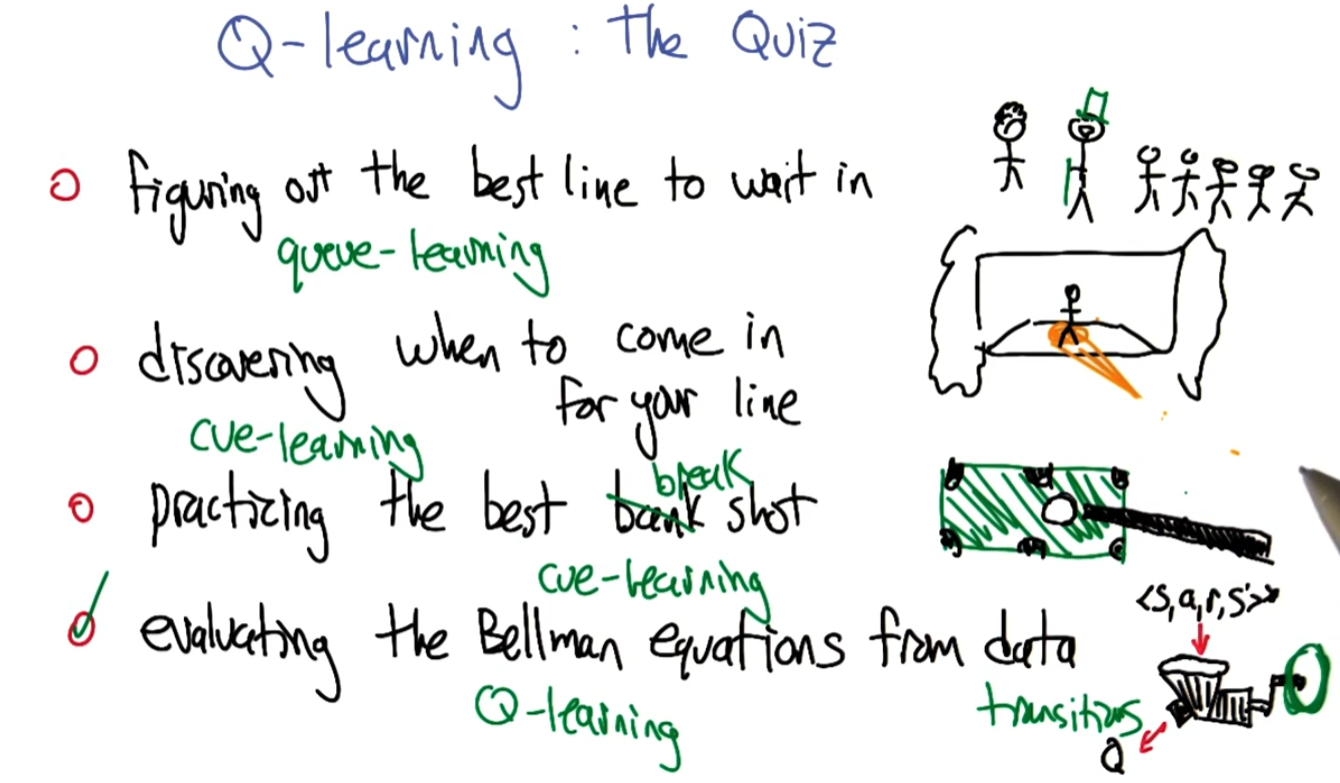 Q-learning : The Quiz
figuring out the best line to wait in
queue-learning
discovering when to come in
for your line
cue-learning
break
practicing the best bank shot
cue-learning
<s,a,r,s'>*
evaluating the Bellman equations from data
Q-learning
transitions
Q